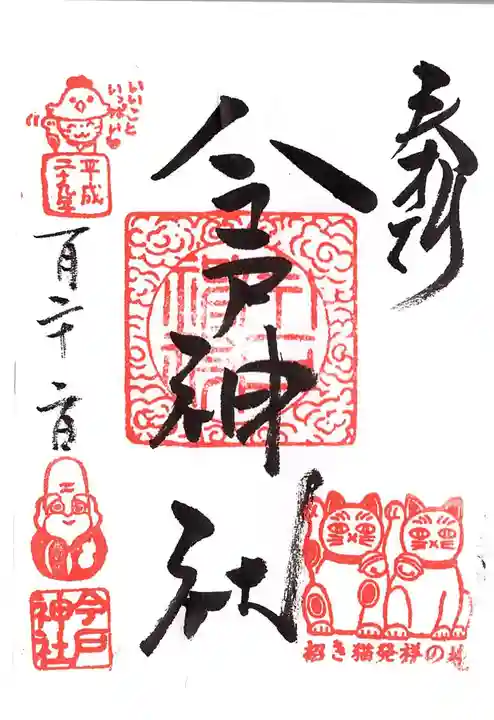 奉拝
今戸神社
いいこと
いっぱい
平成
二十九年
一月二十二日
今戸
神社
招き猫発祥の地